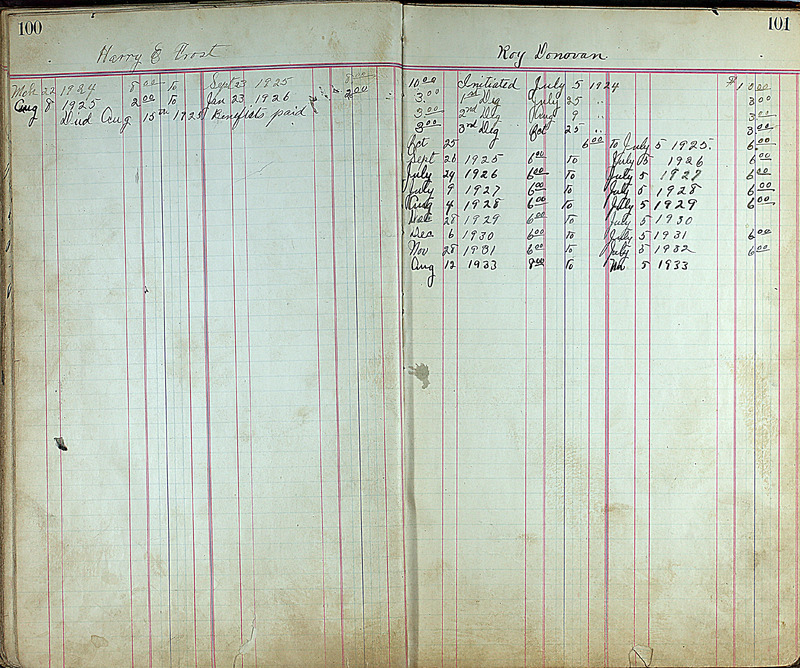 100
Harry E Frost
22 1924 8 00 To Sept 23 1925 8 00
Aug 8 1925 2 00 To Jan 23 1926 2 00
Died Aug 15th 1925 Benefits paid
101
Roy Donovan
10 00 Initiated July 5 1924 $10 00
3 00 1st Deg July 25 " 3 00
3 00 2nd Deg Aug 9 " 3 00
3 00 3rd Deg Oct 25 " 3 00
Oct 25 6 00 To July 5 1925. 6 00
Sept 26 1925 6 00 To July 5 1926 6 00
July 24 1926 6 00 To July 5 1927 6 00
July 9 1927 6 00 To July 5 1928 6 00
Aug 4 1928 6 00 To July 5 1929 6 00
28 1929 6 00 To July 5 1930
Dec 6 1930 6 00 To July 5 1931 6 00
Nov 28 1931 6 00 To July 5 1932 6 00
Aug 12 1933 8 00 To 5 1933